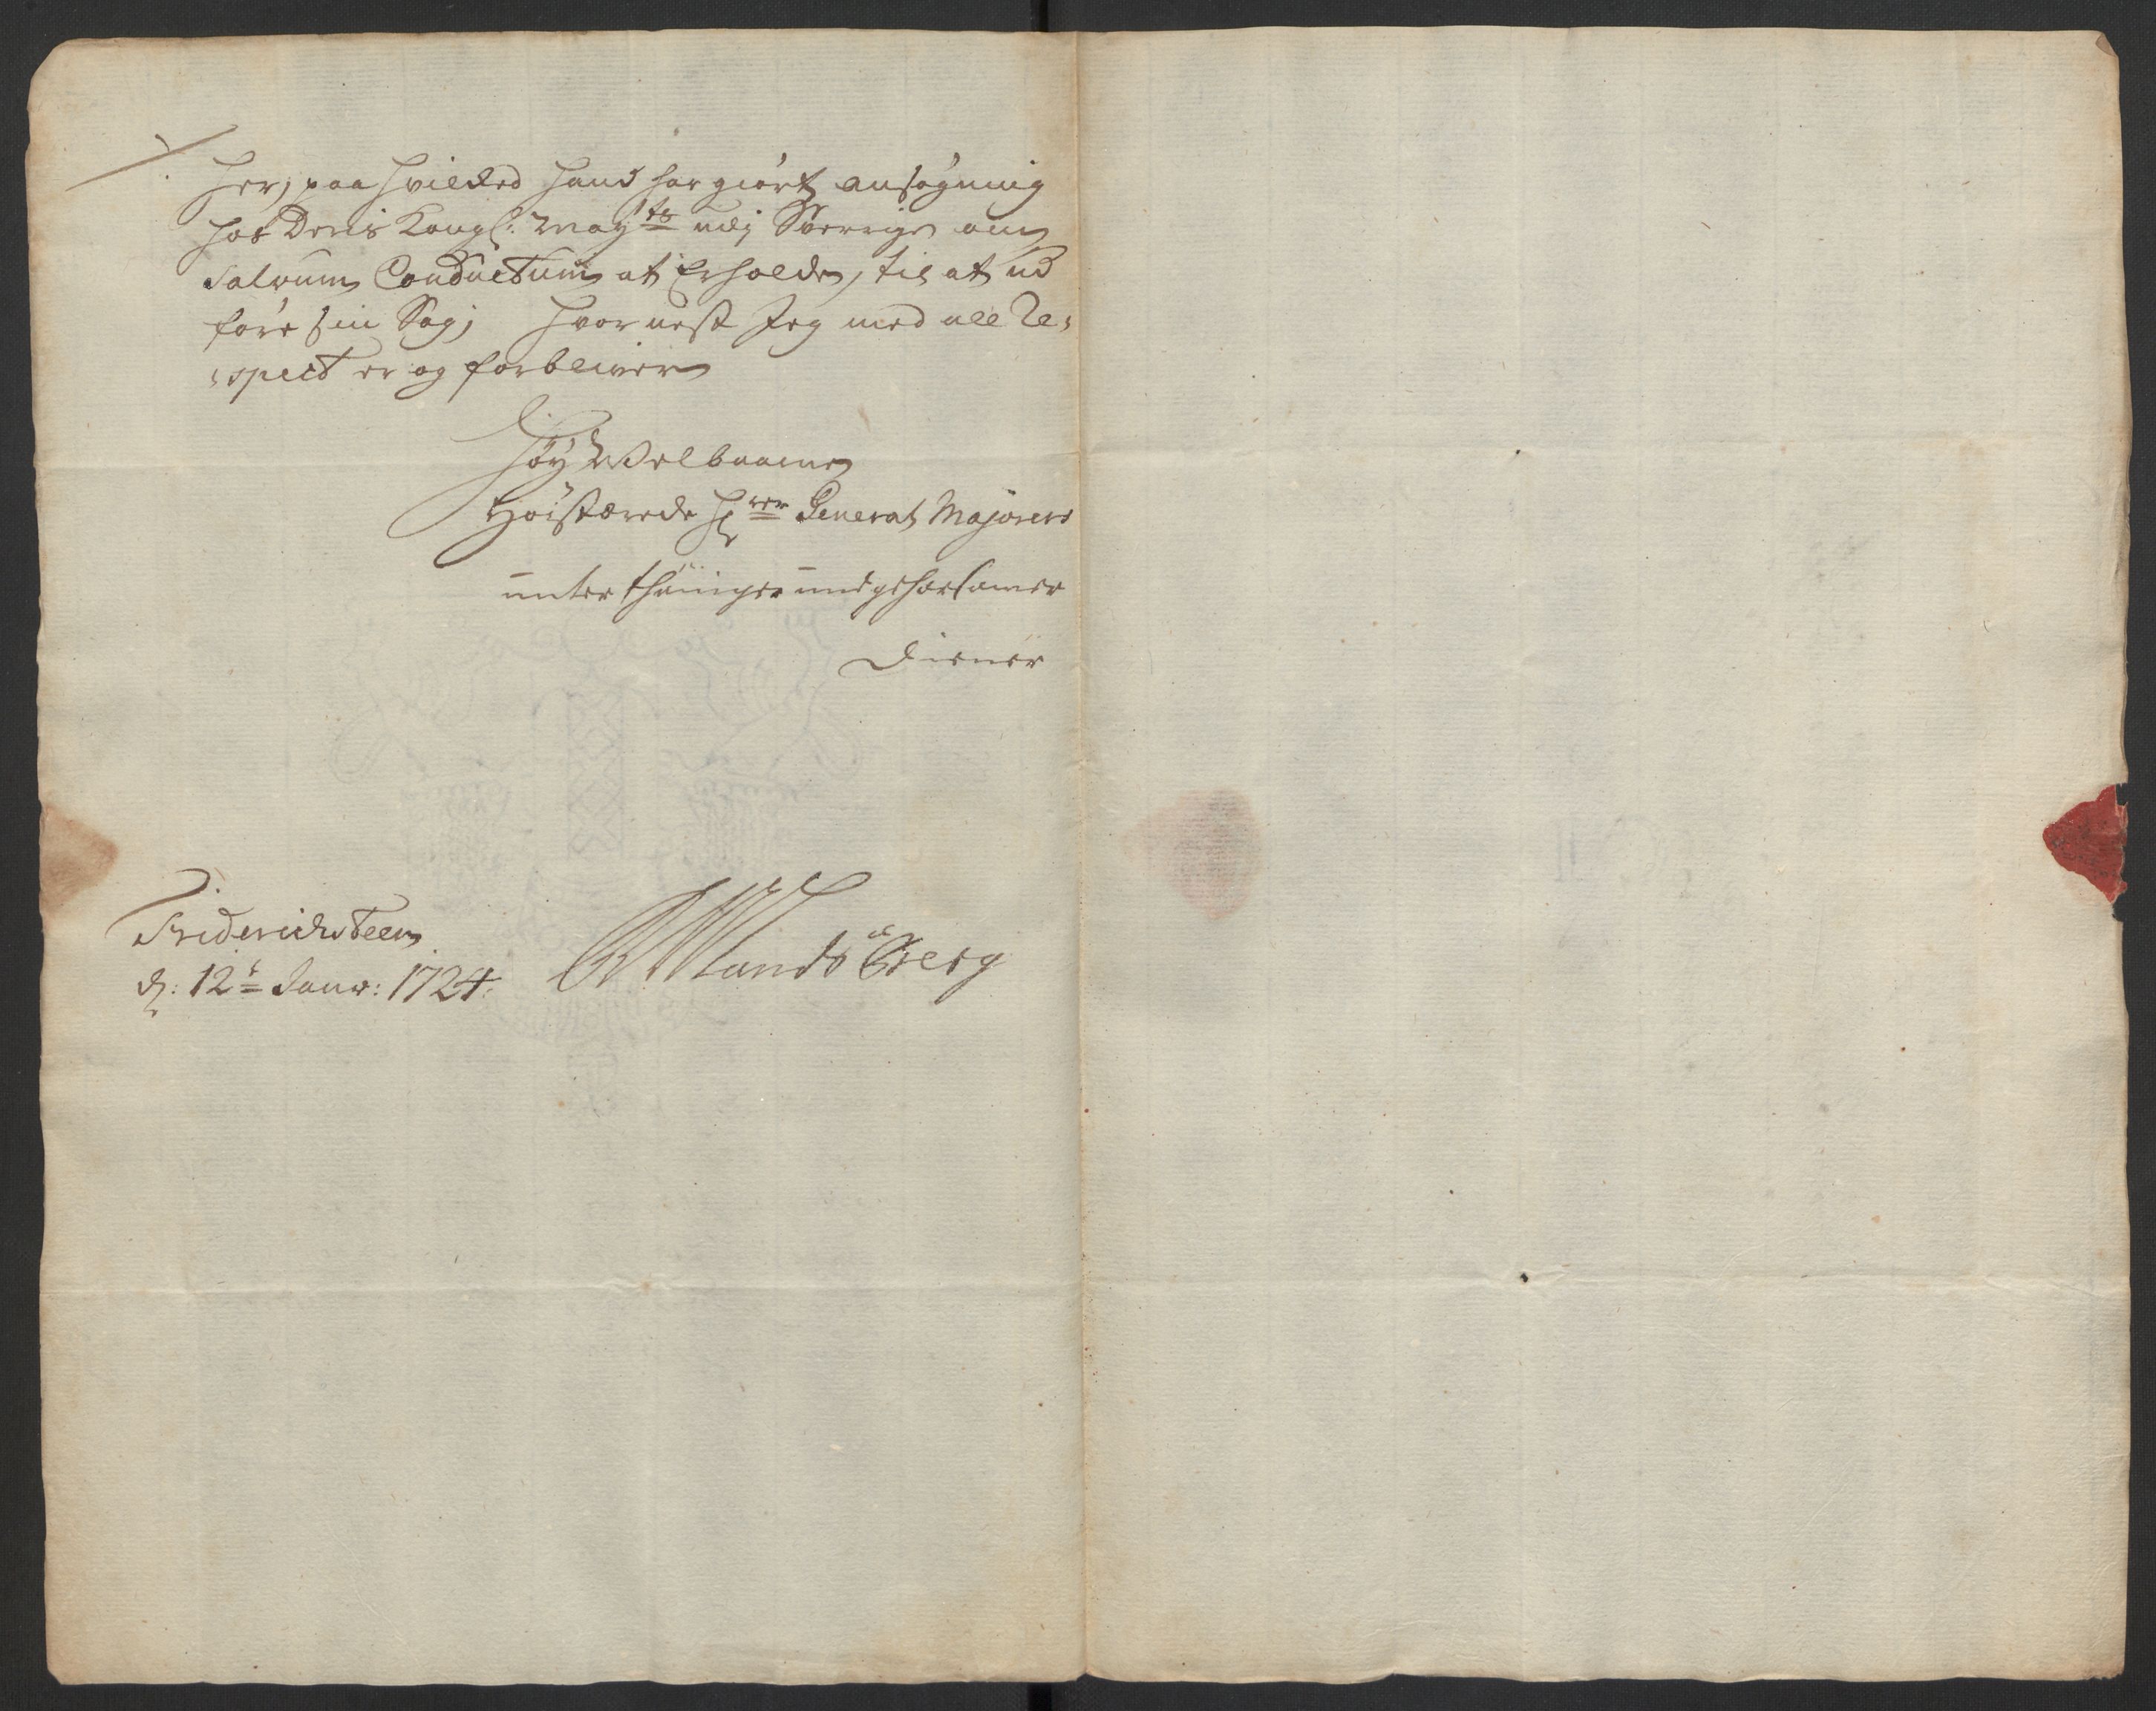 her, paa hvilcked hand har giort ansøgning
hos Deris Kongl: Mayts udj Sverrige om
Salvum Conductum at Erholde, til at ud
føre sin Sag; hvornest Jeg med all Re,
,spect er og forbliver
Høy Welbaarne
Høistærede Hrrer General Majorens
unterthäniger und gehorsamer
diener
Friderichsteen
d: 12t Janv: 1724.
Landsberg